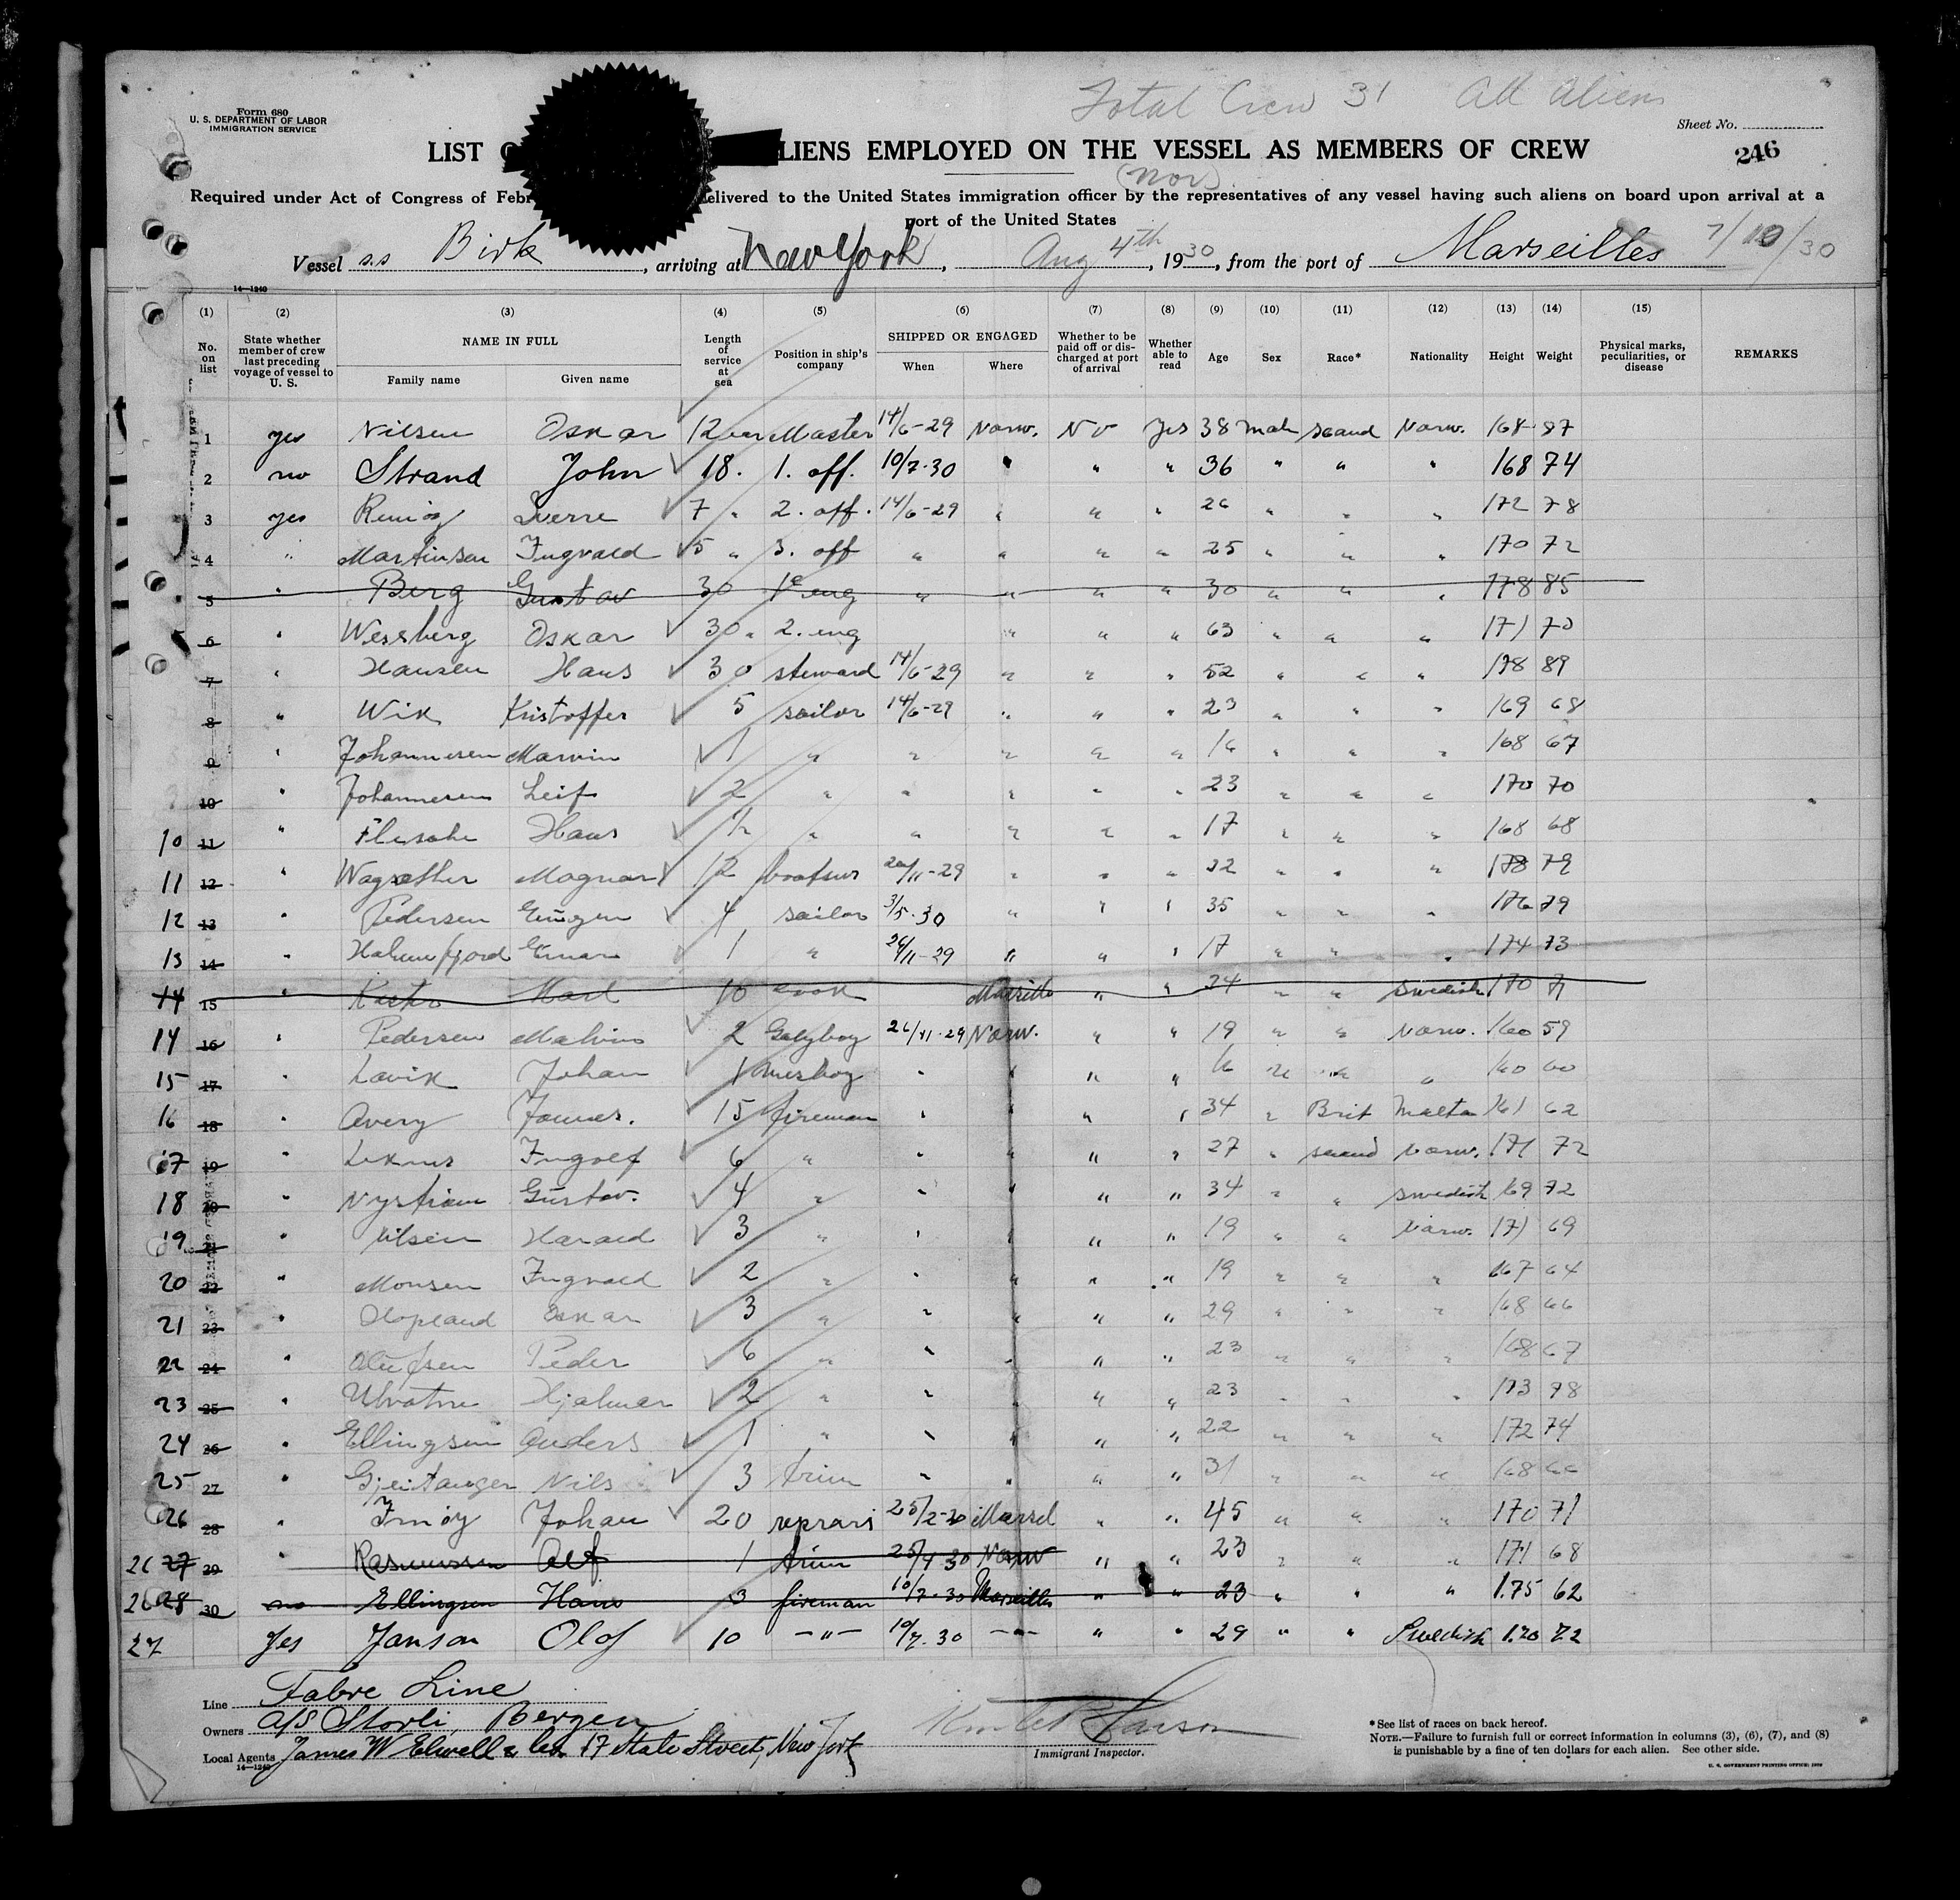 Total Crew 31 All Aliens
Form 680
U. S. DEPARTMENT OF LABOR
IMMIGRATION SERVICE
Sheet No.
246
LIST O LIENS EMPLOYED ON THE VESSEL AS MEMBERS OF CREW
(Nor)
Required under Act of Congress of Febr elivered to the United States immigration officer by the representatives of any vessel having such aliens on board upon arrival at a
port of the United States
Vessel s.s Birk, arriving at New York, Aug 4th, 1930, from the port of Marseilles 7/10/30
14—1240
(1) (2) (3) (4) (5) (6) (7) (8) (9) (10) (11) (12) (13) (14) (15)
No. on list State whether member of crew last preceding voyage of vessel to U. S. NAME IN FULL Family name Given name Length of service at sea Position in ship's company SHIPPED OR ENGAGED When Where Whether to be paid off or discharged at port of arrival Whether able to read Age Sex Race* Nationality Height Weight Physical marks, peculiarities, or disease REMARKS
1 yes Nilsen Oskar 12 Master 14/6-29 Norw. No Yes 38 male scand Norw. 168 87
2 no Strand John 18 . 1. off. 10/7-30 " " " 36 " " " 168 74
3 yes Sverre 7 " 2. off. 14/6-29 " " " 26 " " " 172 78
4 " Martinsen Ingvald 5 " 3. off " " " " 25 " " " 170 72
5 " Berg Gustav 30 1e eng " " " " 30 " " " 178 85
6 " Wessberg Oskar 30 " 2. eng " " " 63 " " " 171 70
7 " Hansen Hans 30 steward 14/6-29 " " " 52 " " " 178 89
8 " Wik Kristoffer 5 sailor 14/6-29 " " " 23 " " " 169 68
9 " Johannesen Marvin 1 " " " " " 16 " " " 168 67
10 " Johannesen Leif 2 " " " " " 23 " " " 170 70
10 11 " Hans 1/2 " " " " " 17 " " " 168 68
11 12 " Magnar 12 26/11-29 " " " 22 " " " 178 79
12 13 " Pedersen 4 sailor 3/5-30 " " " 35 " " " 176 79
13 14 " Einar 1 " 26/11-29 " " " 17 " " " 174 73
14 15 " Karl 10 cook Marseille " " 24 " " Swedish 170 71
14 16 " Pedersen 2 26/11-29 Norw. " " 19 " " Norw. 160 59
15 17 " Lavik Johan 1 " " " " 16 " " " 60 60
16 18 " Avery James. 15 fireman " " " " 34 " Brit Malta 161 62
17 19 " 6 " " " " " 27 " scand Norw. 171 72
18 20 " Nystrøm Gustav. 4 " " " " " 34 " " Swedish 169 72
19 21 " Nilsen Harald 3 " " " " " 19 " " Norw. 171 69
20 22 " Monsen Ingvald 2 " " " " " 19 " " " 167 64
21 23 " Hopland Oskar 3 " " " " " 29 " " " 168 66
22 24 " Olufsen Peder 6 " " " " " 23 " " " 168 67
23 25 " Hjalmar 2 " " " " " 23 " " " 173 78
24 26 " Ellingsen Anders 1 " " " " " 22 " " " 172 74
25 27 " Nils 3 trim " " " " 31 " " " 168 66
26 28 " Johan 20 25/2-30 Marsel " " 45 " " " 170 71
26 27 29 " Rasmussen Alf 1 trim 25/4 30 Norw " " 23 " " " 171 68
26 28 30 no Ellingsen Hans 3 fireman 10/7-30 Marseilles " " 23 " " " 1.75 62
27 Yes Janson Olof 10 -"- 10/7.30 -"- " " 29 " " Swedish 1.70 72
Line Fabre Line
Owners A/S Storli, Bergen
Local Agents James W Elwell & Co. 17 State Street, New York
14—1240
Immigrant Inspector.
*See list of races on back hereof.
NOTE.—Failure to furnish full or correct information in columns (3), (6), (7), and (8)
is punishable by a fine of ten dollars for each alien. See other side.
U. S. GOVERNMENT PRINTING OFFICE: 1929